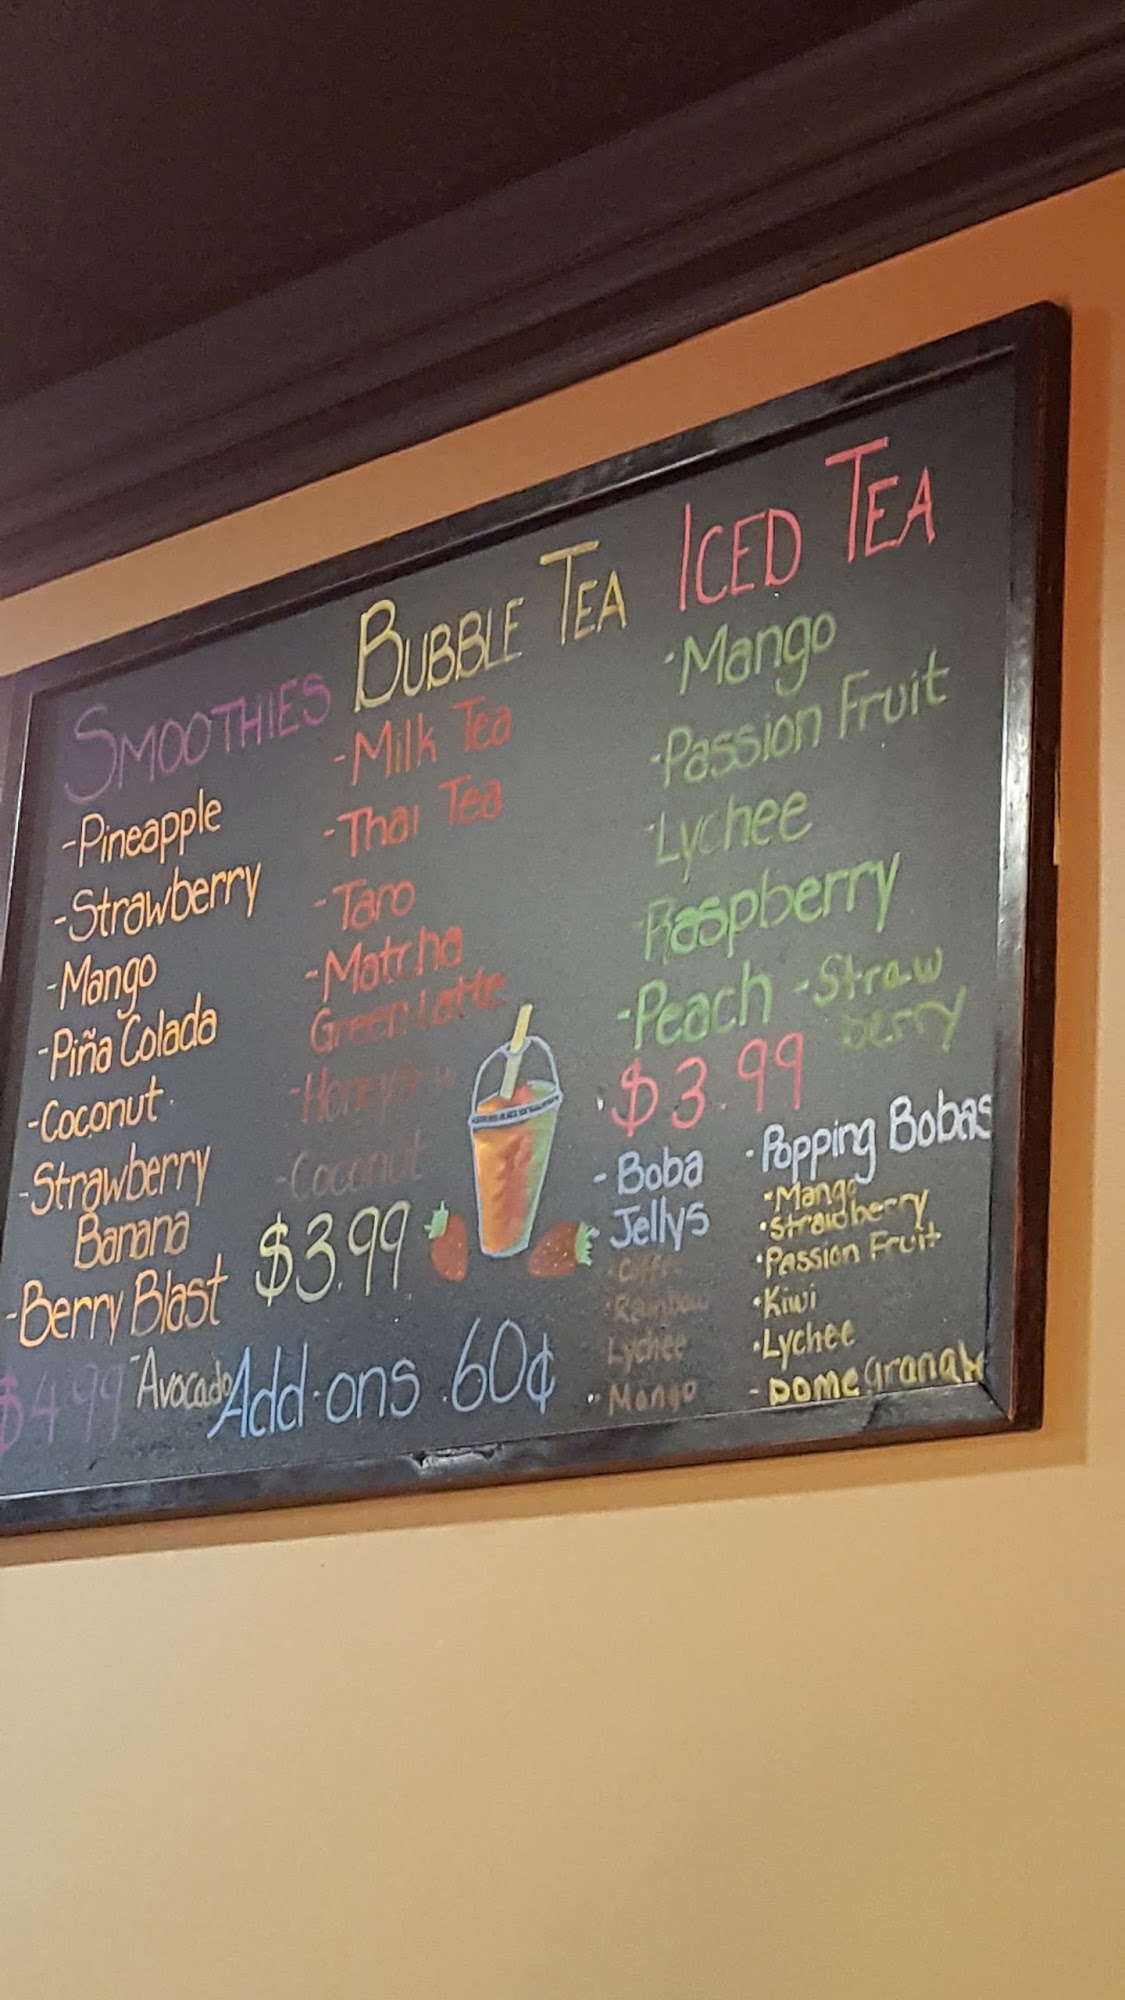 SMOOTHIES
-Pineapple
-Strawberry
-Mango
-Piña Colada
-Coconut
-Strawberry
Banana
-Berry Blast
-Avocado
$4.99
BUBBLE TEA
-Milk Tea
-Thai Tea
-Taro
-Matcha
Green Latte
-Coconut
$3.99
Add-ons .60¢
ICED TEA
·Mango
·Passion Fruit
·Lychee
·Raspberry
-Peach
-Straw
berry
·$3.99
-Boba
Jellys
·Rainbow
Lychee
·Mango
·Popping Bobas
·Mango
·Strawberry
·Passion Fruit
·Kiwi
·Lychee
-Pomegranate